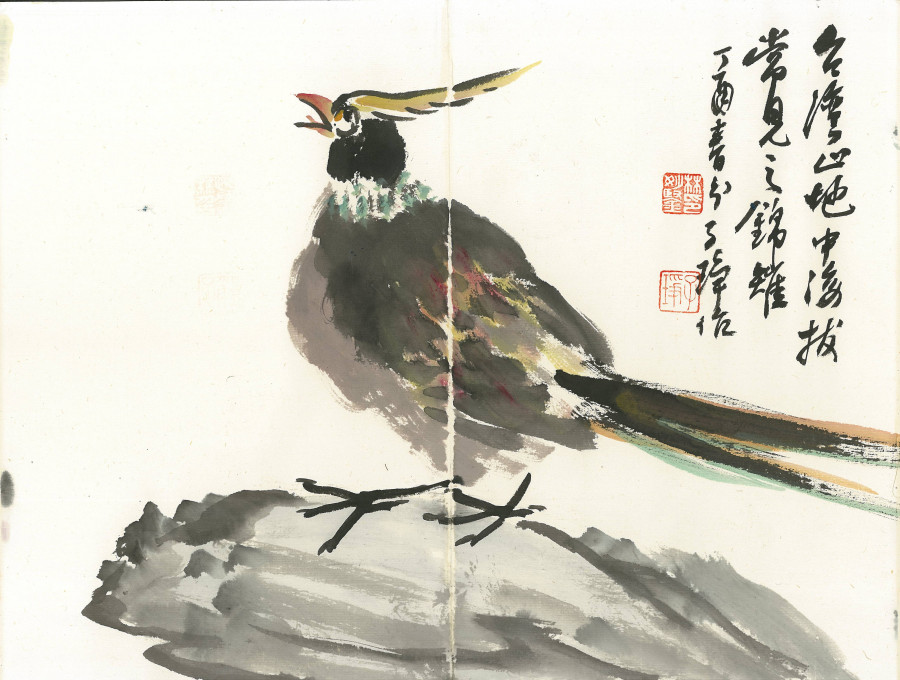 台灣山地中海拔
常見之錦雉
丁酉春分子